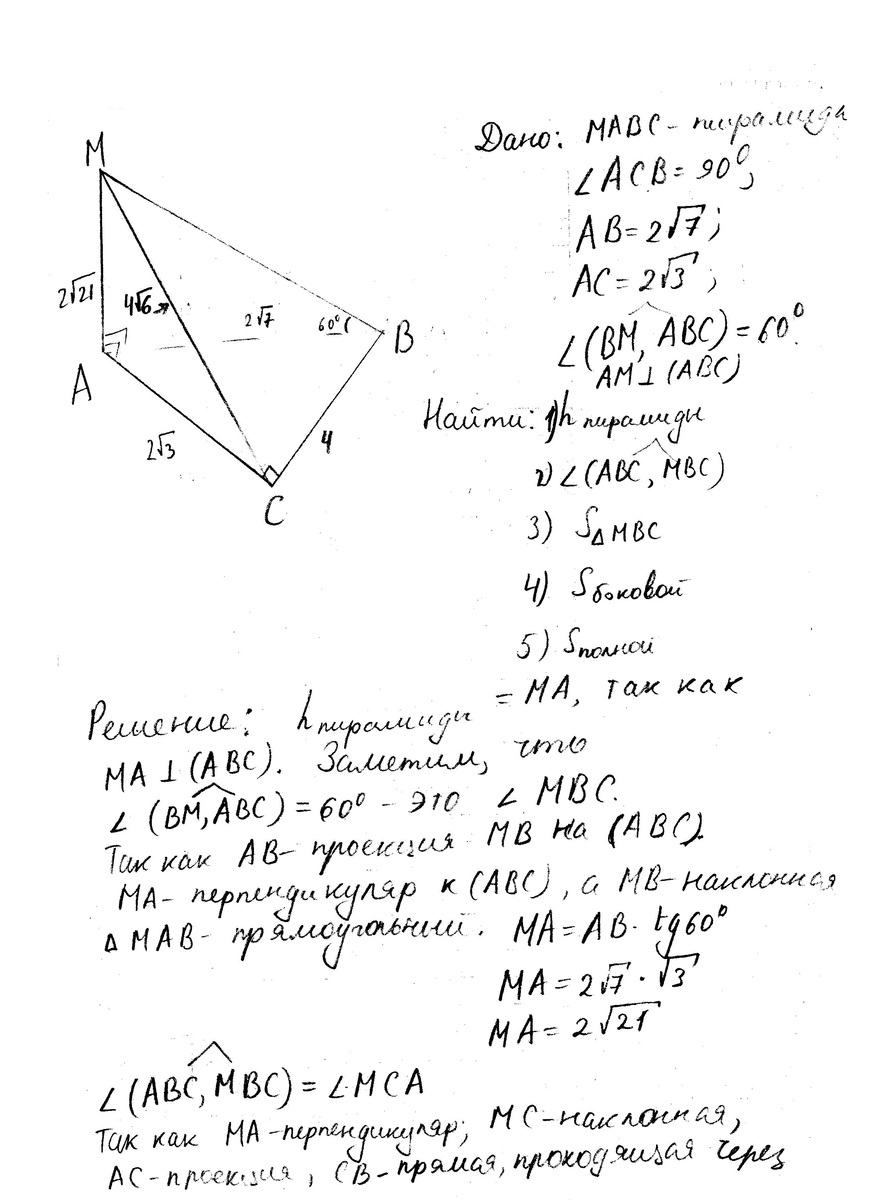 M
2√21
4√6
2√7
60°
B
A
2√3
4
C
Дано: MABC - пирамида
∠ACB = 90°;
AB = 2√7;
AC = 2√3;
∠(BM, ABC) = 60°.
AM ⊥ (ABC)
Найти: 1) h пирамиды
2) ∠(ABC, MBC)
3) S△MBC
4) Sбоковой
5) Sполной
Решение: h пирамиды = MA, так как
MA ⊥ (ABC). Заметим, что
∠ (BM, ABC) = 60° - это ∠ MBC.
Так как AB - проекция MB на (ABC).
MA - перпендикуляр к (ABC), а MB - наклонная
△ MAB - прямоугольный. MA = AB · tg60°
MA = 2√7 · √3
MA = 2√21
∠(ABC, MBC) = ∠MCA
Так как MA - перпендикуляр, MC - наклонная,
AC - проекция, CB - прямая, проходящая через